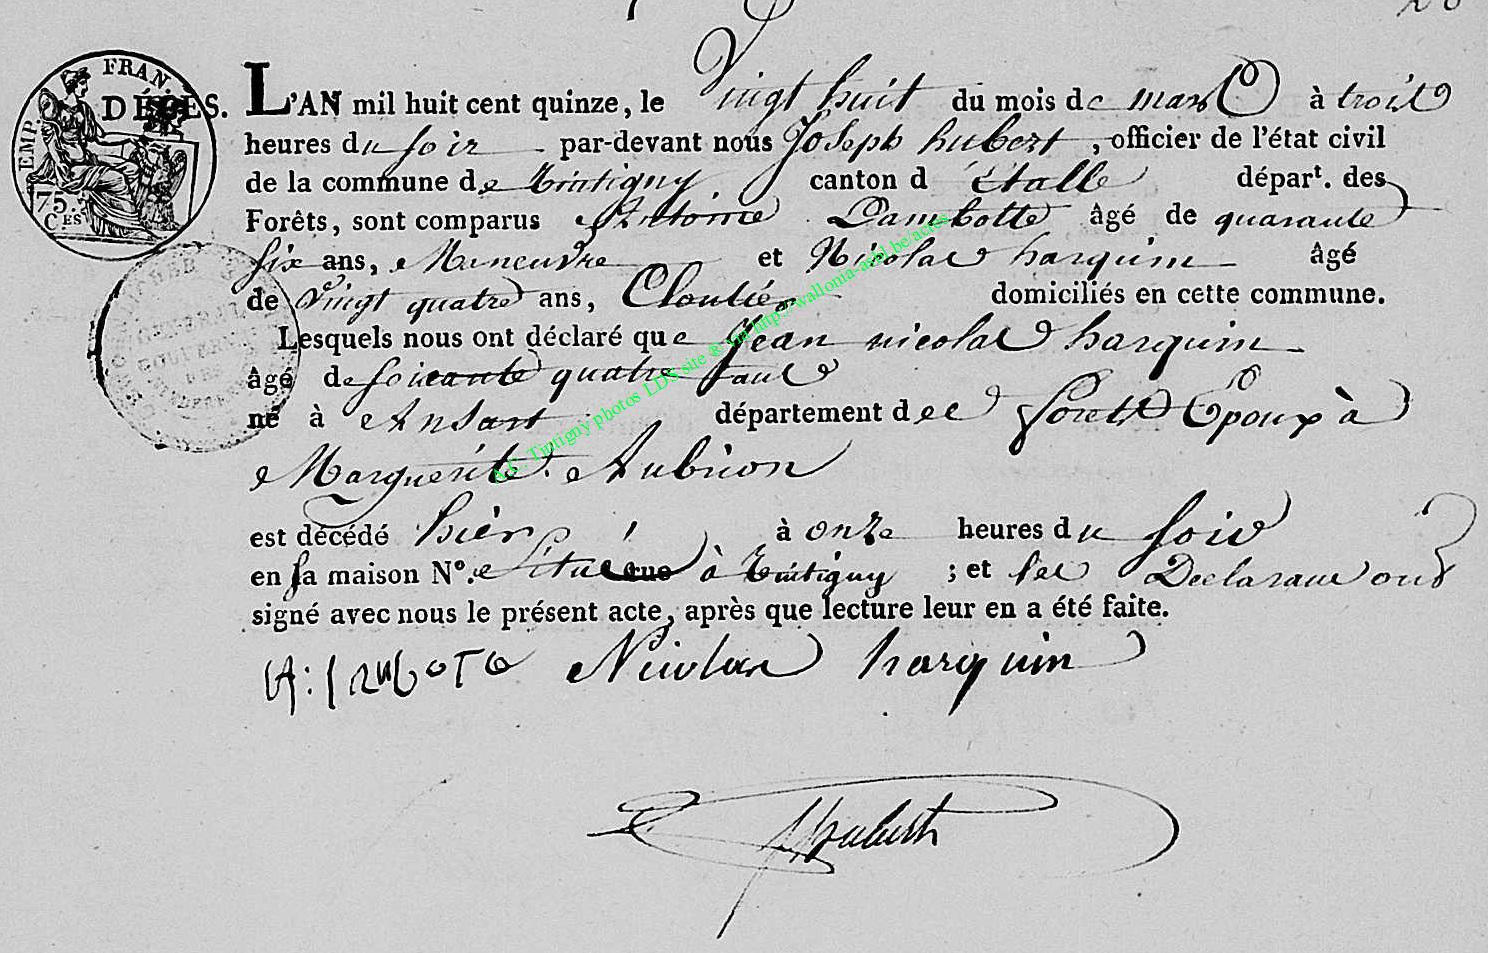 FRAN.
EMP.
75.
CES
DÉCES. L'AN mil huit cent quinze, le Vingt huit du mois de mars à trois
heures du soir par-devant nous Joseph hubert, officier de l'état civil
de la commune de tintigny, canton d'étalle départ. des
Forêts, sont comparus Antoine Lambotte âgé de quarante
six ans, Maneuvre et Nicolas harquin âgé
de Vingt quatre ans, Cloutier domiciliés en cette commune.
Lesquels nous ont déclaré que Jean nicolas harquin
âgé de soixante quatre ans
né à Ansart département des forets Epoux à
Marguerite Aubrion
est décédé hier à onze heures du soir
en sa maison No. située rue à tintigny ; et les Declarans ont
signé avec nous le présent acte, après que lecture leur en a été faite.
Nicolas harquin
Hubert
A.C. Tintigny photos LDS site ® via http://wallonia-asbl.be/actes